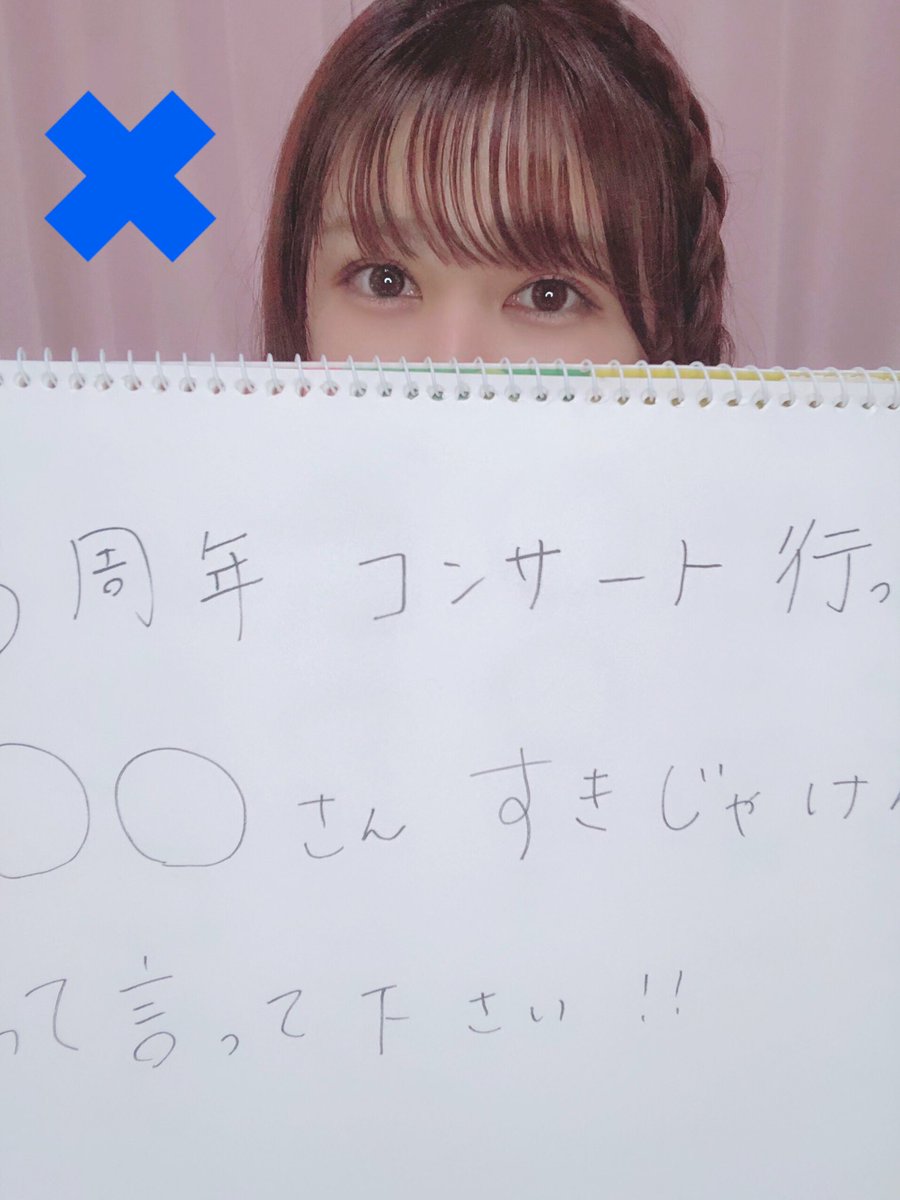 周年 コンサート 行っ
〇〇さん すきじゃけ
って言って下さい!!